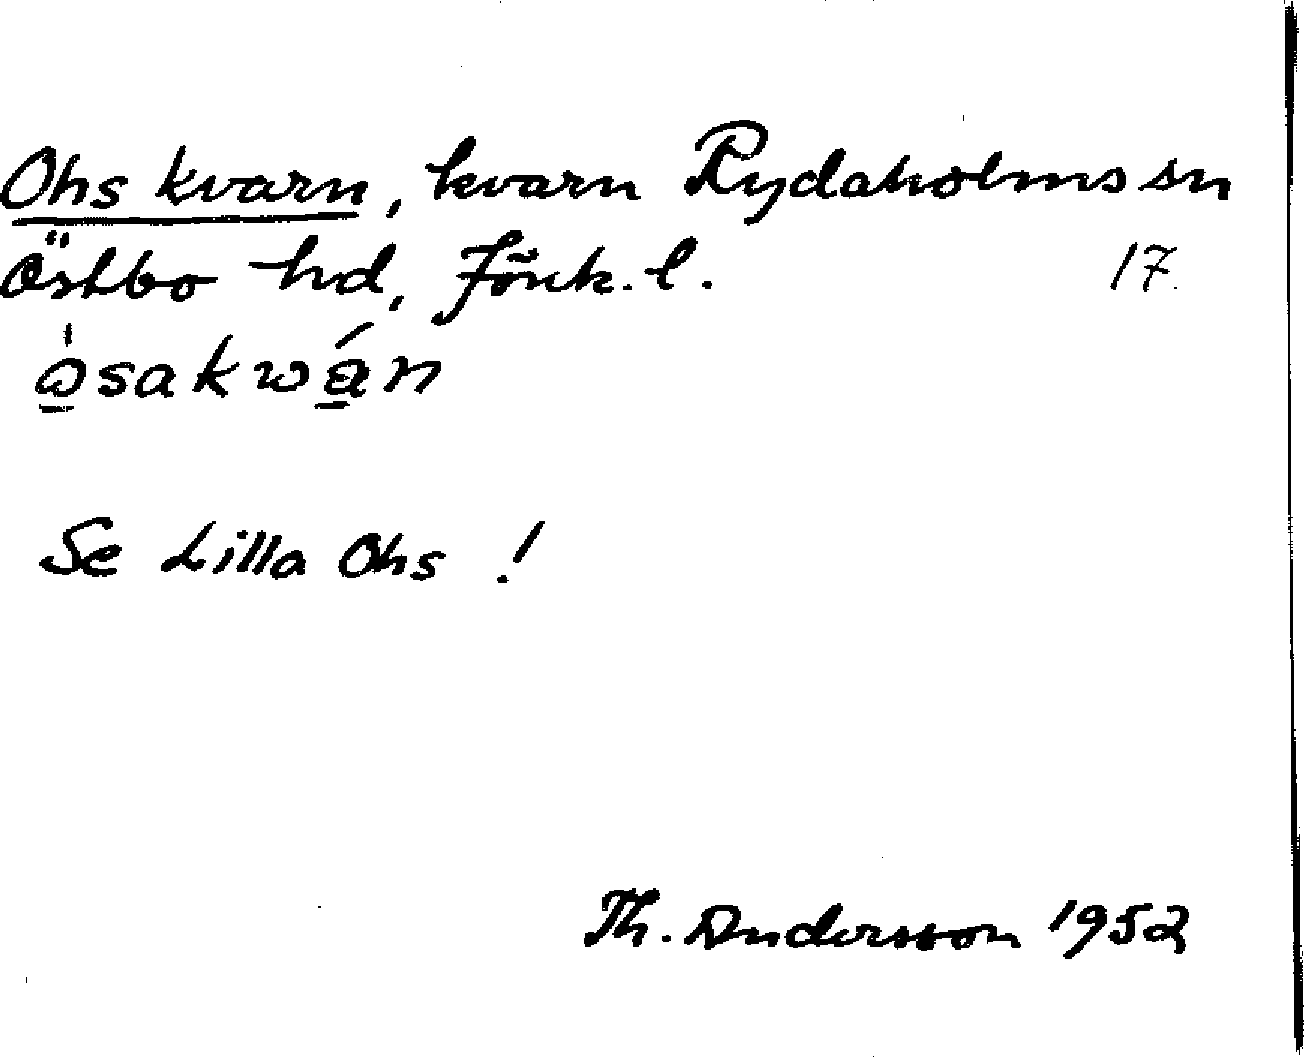 Ohs kvarn, kvarn Rydaholms sn
Östbo hd, Jönk. l. 17.
o̲̍sakwá̲n
Se Lilla Ohs !
Th. Andersson 1952